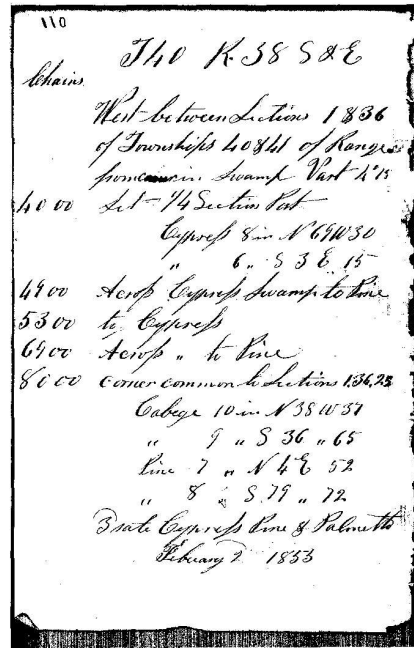 110
T40 R. 38 S & E
Chains
West between Sections 1 & 36
of Townships 40 & 41 of Range
from in Swamp Vart 4°15
40 00 Set 1/4 Section Post
Cypress 8 in N 69 W 30
" 6 " S 3 E 15
49 00 Across Cypress Swamp to Pine
53 00 to Cypress
69 00 Across " to Pine
80 00 corner common to Sections 1.36.25
Cabege 10 in N 38 W 37
" 9 " S 36 " 65
Pine 7 " N 4 E 52
" 8 " S 79 " 72
3 rate Cypress Pine & Palmetto
Febuary 2 1853